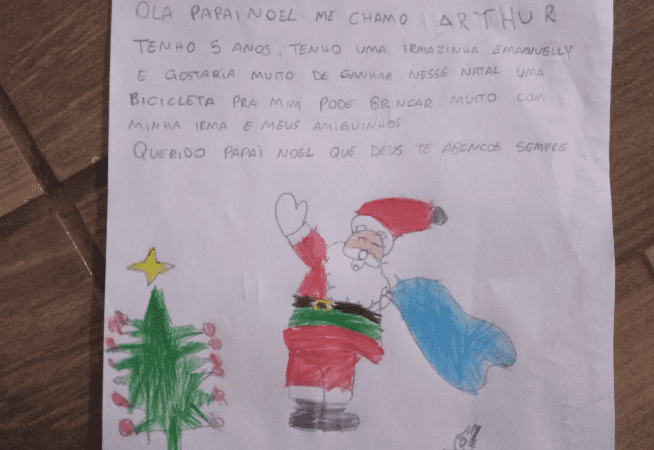 OLA PAPAI NOEL ME CHAMO ARTHUR
TENHO 5 ANOS, TENHO UMA IRMAZINHA EMANUELLY
E GOSTARIA MUITO DE GANHAR NESSE NATAL UMA
BICICLETA PRA MIM PODE BRINCAR MUITO COM
MINHA IRMA E MEUS AMIGUINHOS
QUERIDO PAPAI NOEL QUE DEUS TE ABENCOS SEMPRE